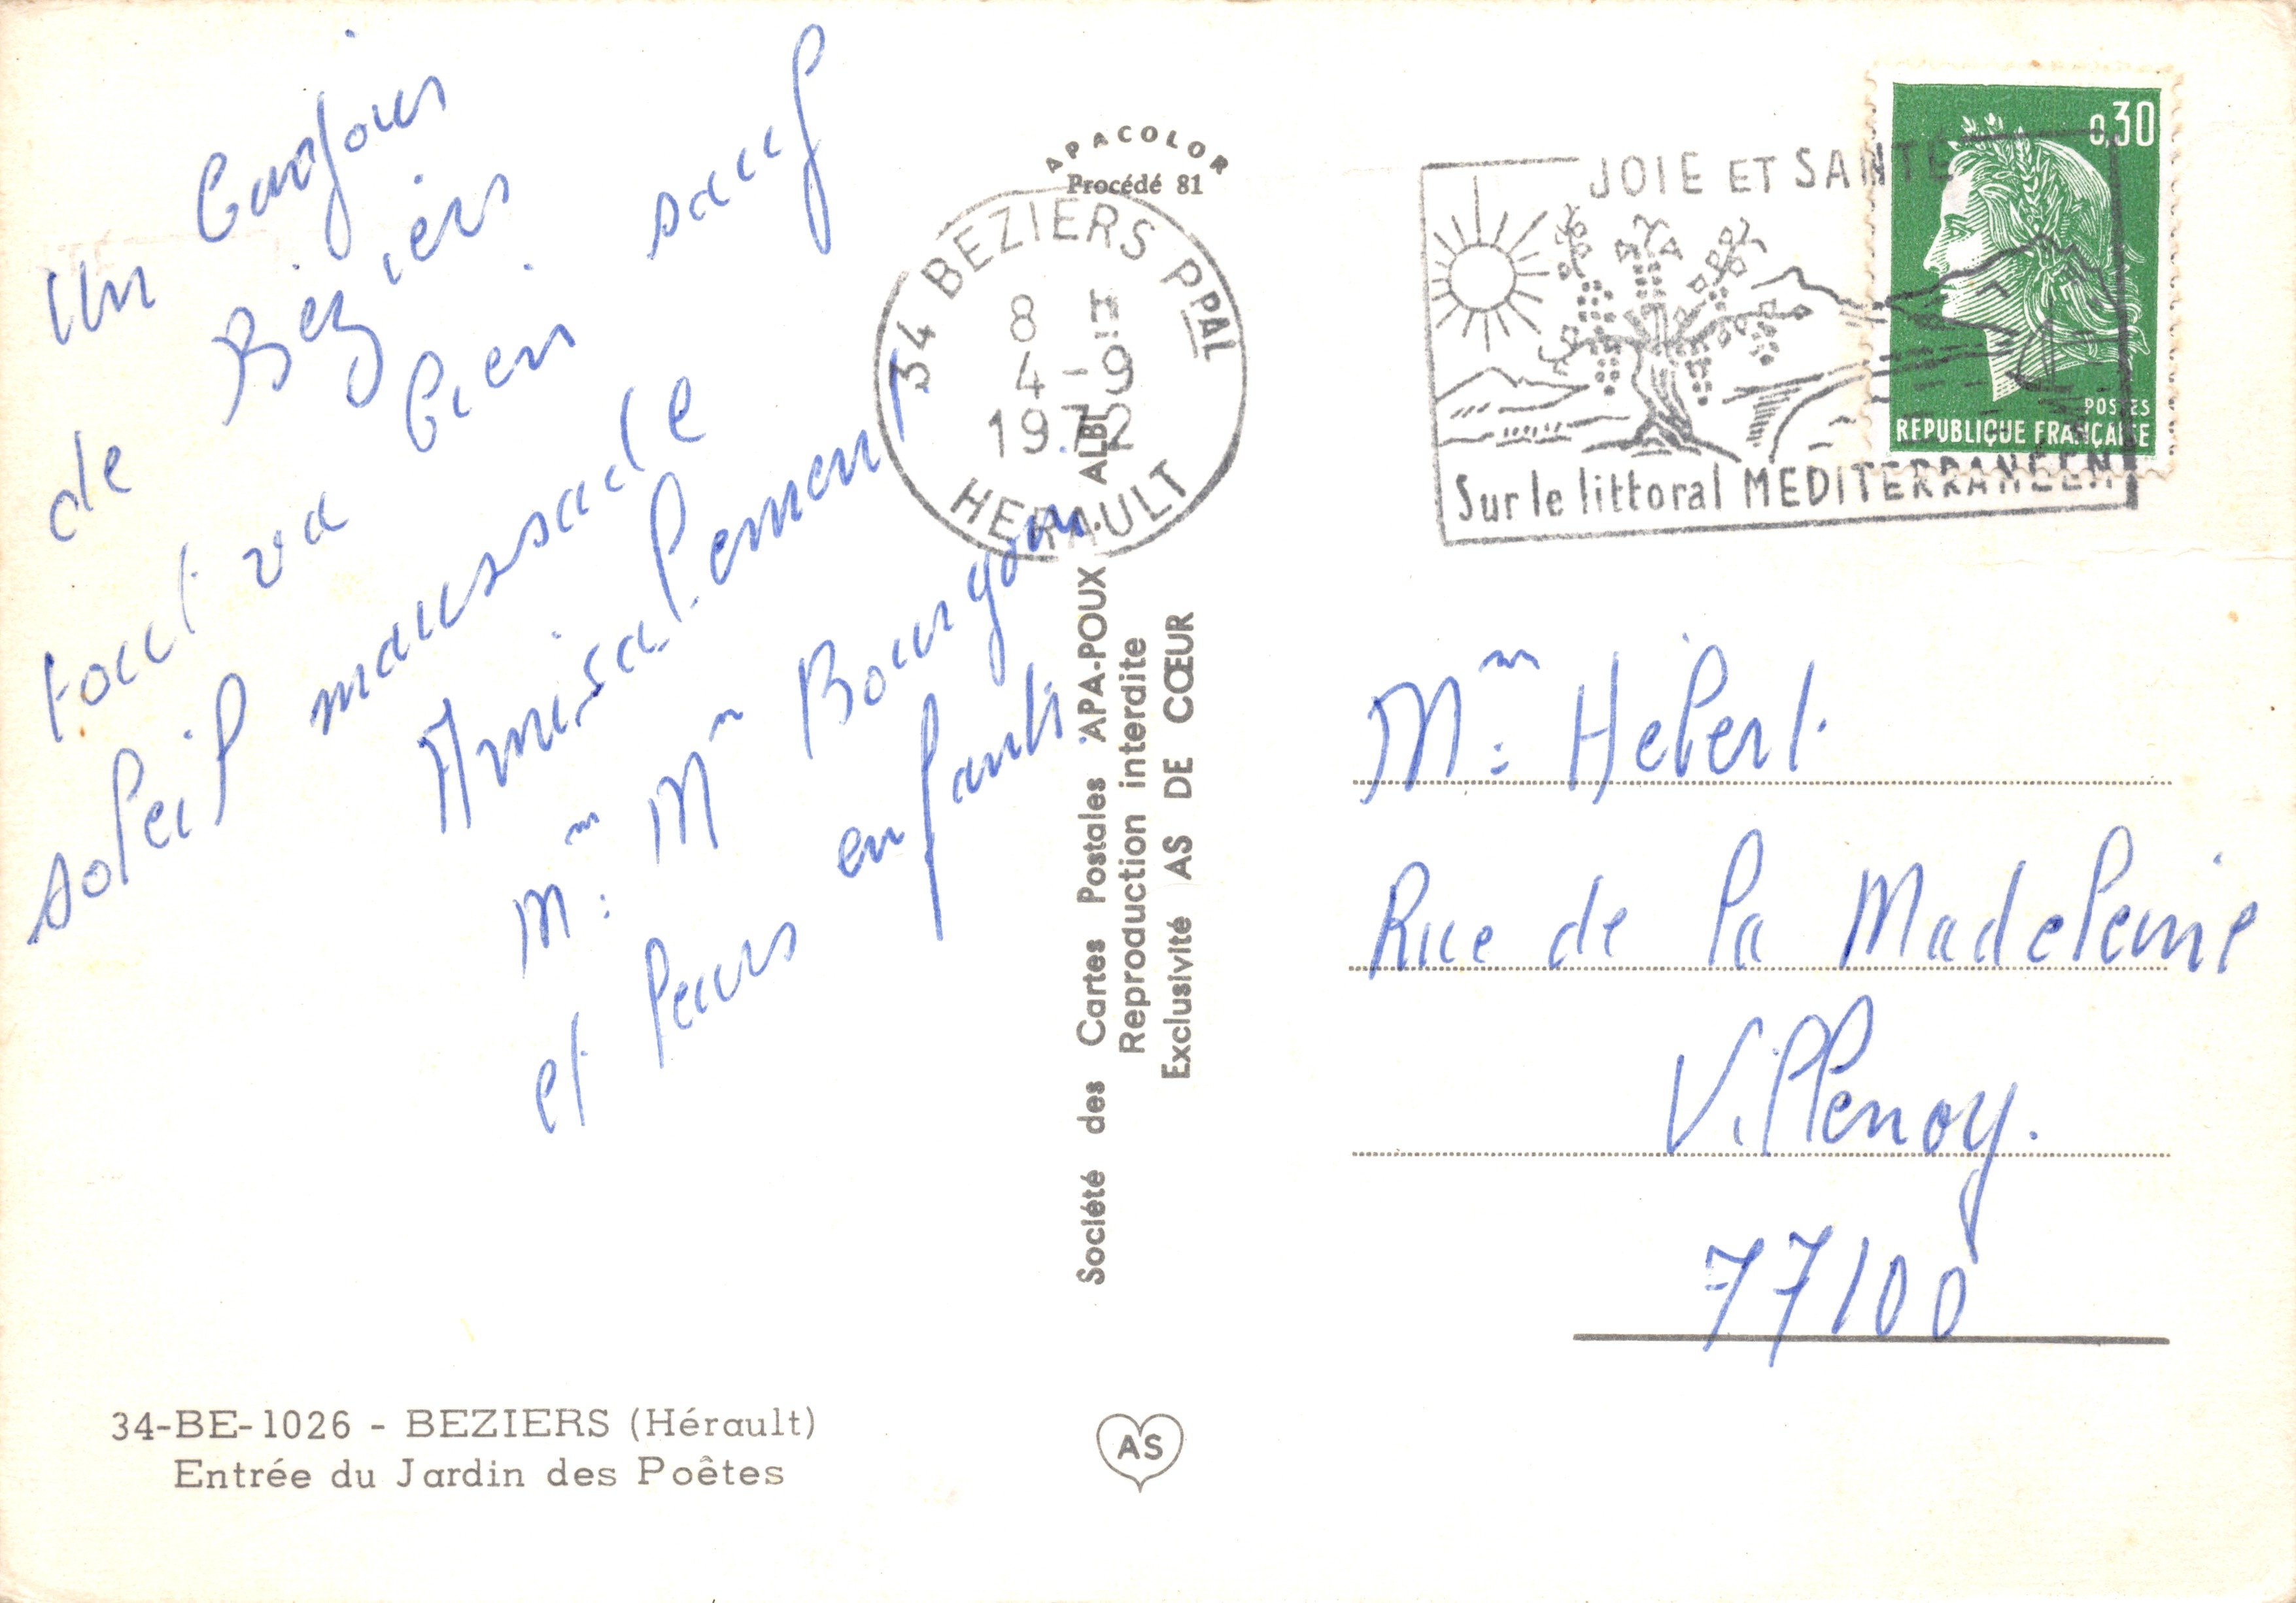 Un bonjour
de Béziers
tout va bien sauf
soleil maussade
Amicalement
Mr. Mm Bourgoin
et leurs enfants.
34-BE-1026 - BEZIERS (Hérault)
Entrée du Jardin des Poêtes
APACOLOR
Procédé 81
34 BEZIERS PPAL
8 H
4 - 9
1972
HERAULT
Société des Cartes Postales APA-POUX - ALBI
Reproduction interdite
Exclusivité AS DE CŒUR
AS
JOIE ET SANTÉ
Sur le littoral MEDITERRANEEN
0,30
POSTES
REPUBLIQUE FRANÇAISE
Mm: Hebert.
Rue de la Madeleine
Villenoy.
77100